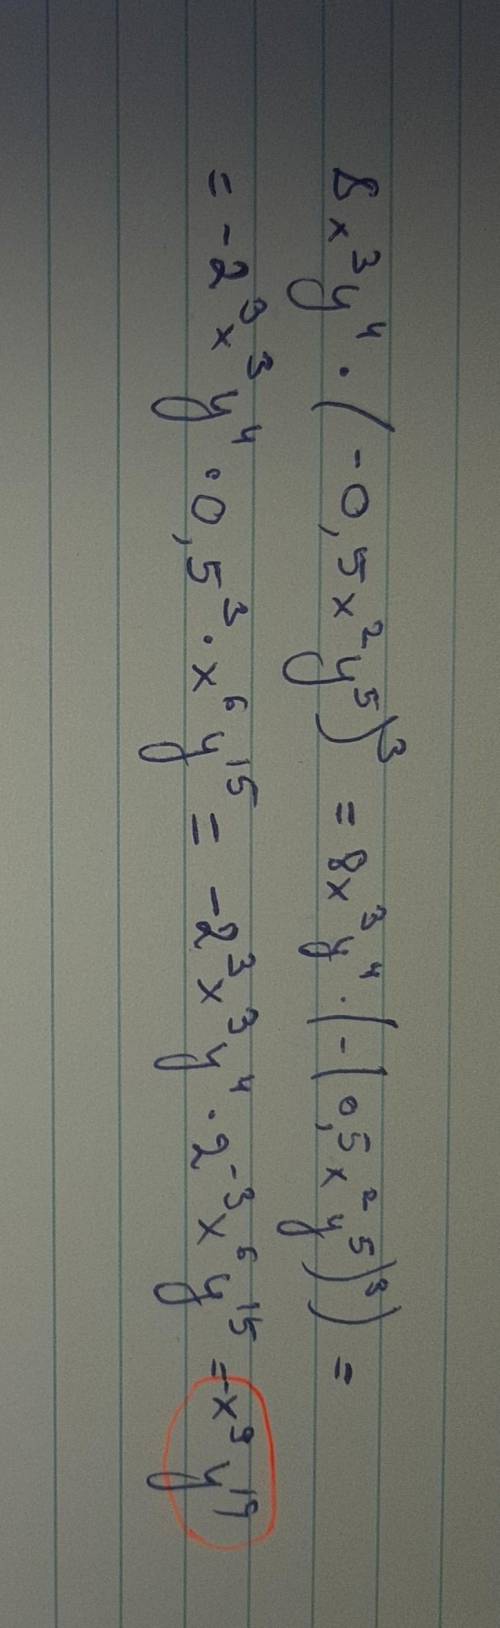 8x³y⁴ · (-0,5x²y⁵)³ = 8x³y⁴ · (-(0,5x²y⁵)³) =
= -2³x³y⁴ · 0,5³ · x⁶y¹⁵ = -2³x³y⁴ · 2⁻³x⁶y¹⁵ = -x⁹y¹⁹